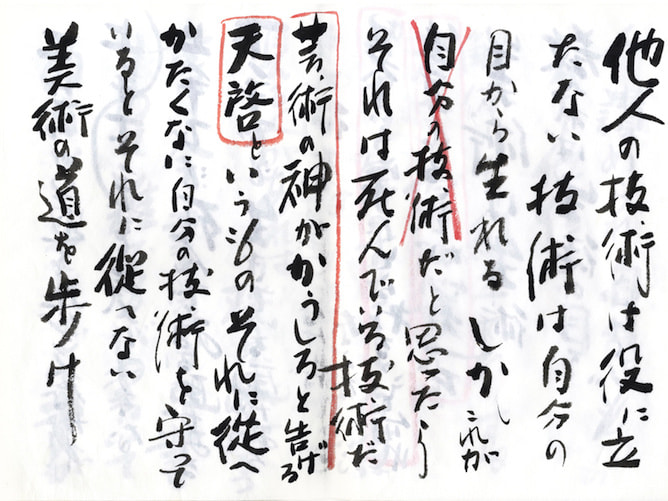 他人の技術は役に立
たない 技術は自分の
目から生れる しかしこれが
自分の技術だと思ったら
それは死んでいる技術だ
芸術の神がかうしろと告げる
天啓というもの それに從へ
かたくなに自分の技術を守って
いるとそれに從へない
美術の道を歩け